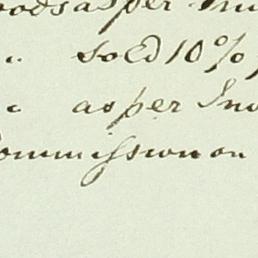 oods as per Inv
" sold 10%
" as per Inv
ommission on